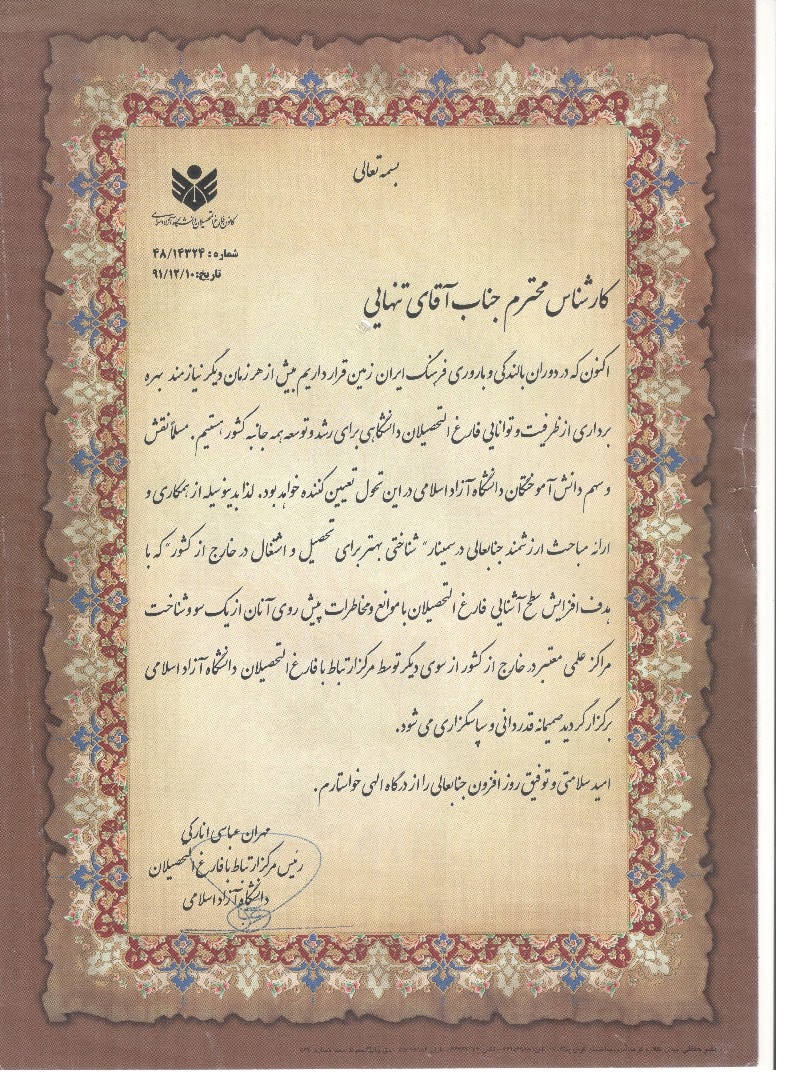 بسمه تعالی
کانون فارغ التحصیلان دانشگاه آزاد اسلامی
شماره: ۴۸/۱۴۳۲۴
تاریخ: ۹۱/۱۲/۱۰
کارشناس محترم جناب آقای تنهایی
اکنون که در دوران بالندگی و باروری فرهنگ ایران زمین قرار داریم بیش از هر زمان دیگر نیازمند بهره
برداری از ظرفیت و توانایی فارغ التحصیلان دانشگاهی برای رشد و توسعه همه جانبه کشور هستیم. مسلماً نقش
و سهم دانش آموختگان دانشگاه آزاد اسلامی در این تحول تعیین کننده خواهد بود. لذا بدینوسیله از همکاری و
ارائه مباحث ارزشمند جنابعالی در سمینار "شناختی بهتر برای تحصیل و اشتغال در خارج از کشور" که با
هدف افزایش سطح آشنایی فارغ التحصیلان با موانع و مخاطرات پیش روی آنان از یک سو و شناخت
مراکز علمی معتبر در خارج از کشور از سوی دیگر توسط مرکز ارتباط با فارغ التحصیلان دانشگاه آزاد اسلامی
برگزار گردید صمیمانه قدردانی و سپاسگزاری می شود.
امید سلامتی و توفیق روز افزون جنابعالی را از درگاه الهی خواستارم.
مهران عباسی انارکی
رئیس مرکز ارتباط با فارغ التحصیلان
دانشگاه آزاد اسلامی